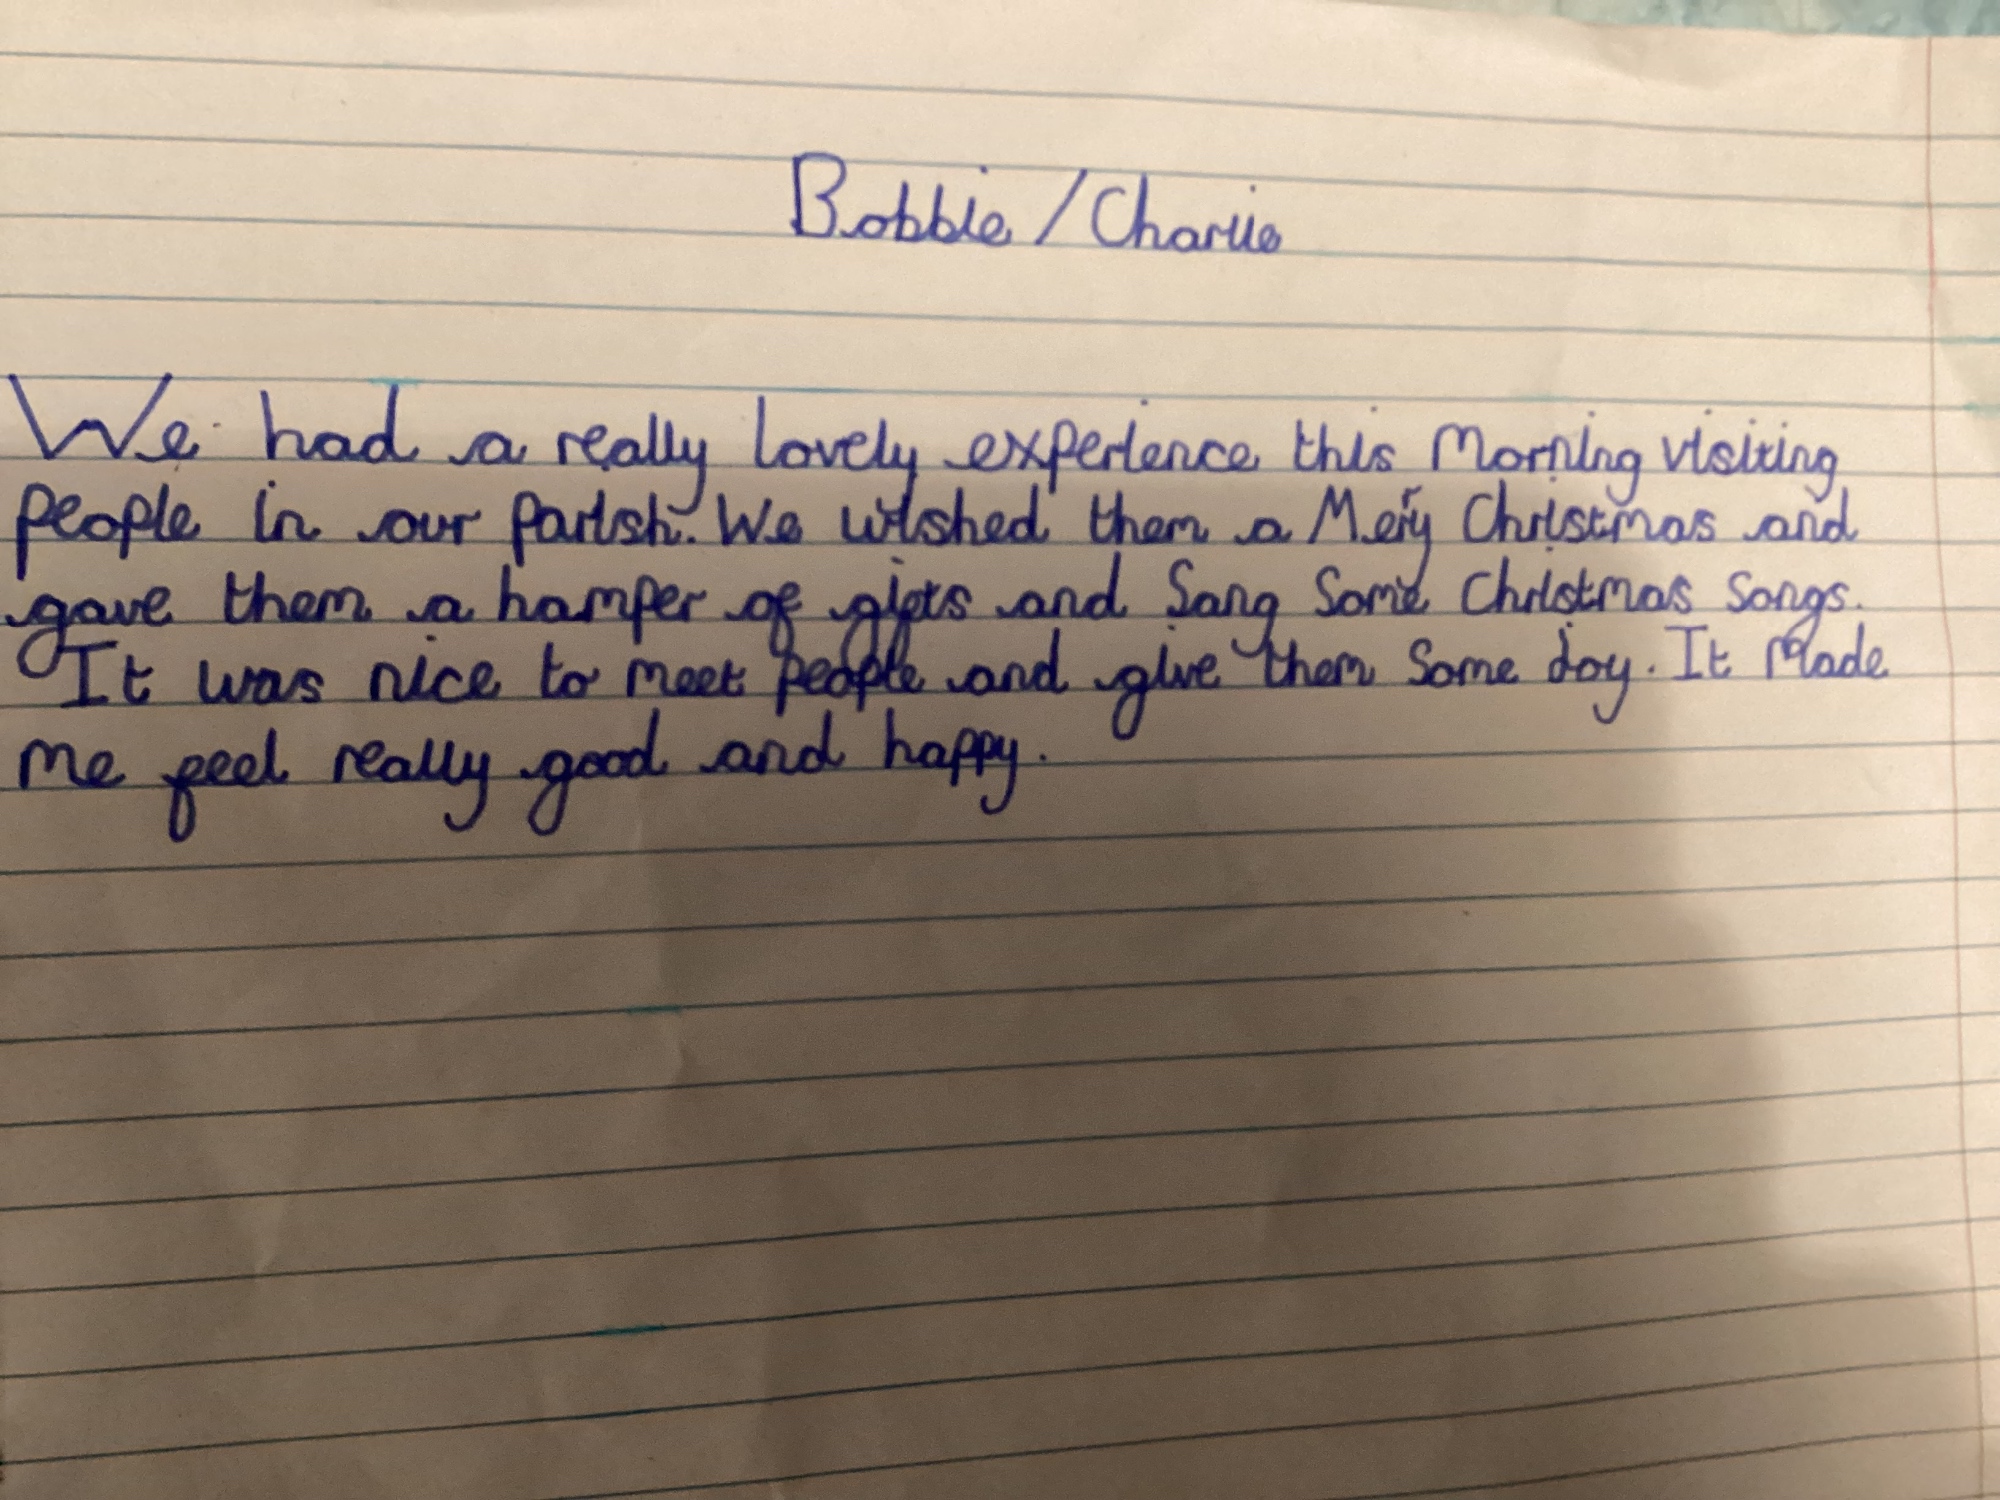 Bobbie/Charlie
We had a really lovely experience this Morning visiting
people in our parish. We wished them a Merry Christmas and
gave them a hamper of gifts and Sang Some Christmas Songs.
It was nice to meet people and give them Some joy. It Made
me feel really good and happy.